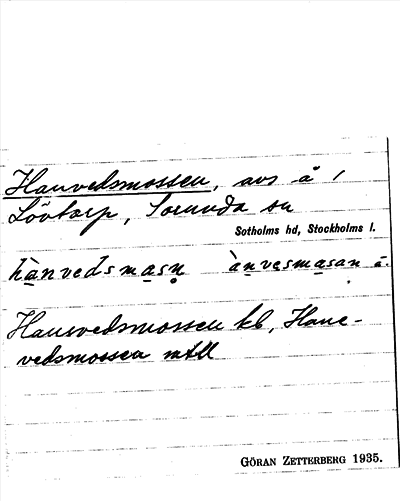 Hanvedsmossen, avs å 1
Lövtorp, Sorunda sn
Sotholms hd, Stockholms l.
hànvedsmasn̥ ànvesmasan å.
Hanvedsmossen kb, Hane-
vedsmossen mtll
GÖRAN ZETTERBERG 1935.